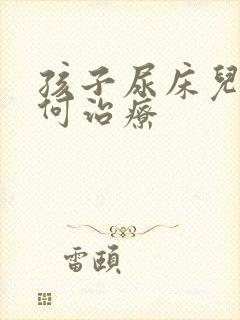 孩子尿床兒
何治療
雷頤